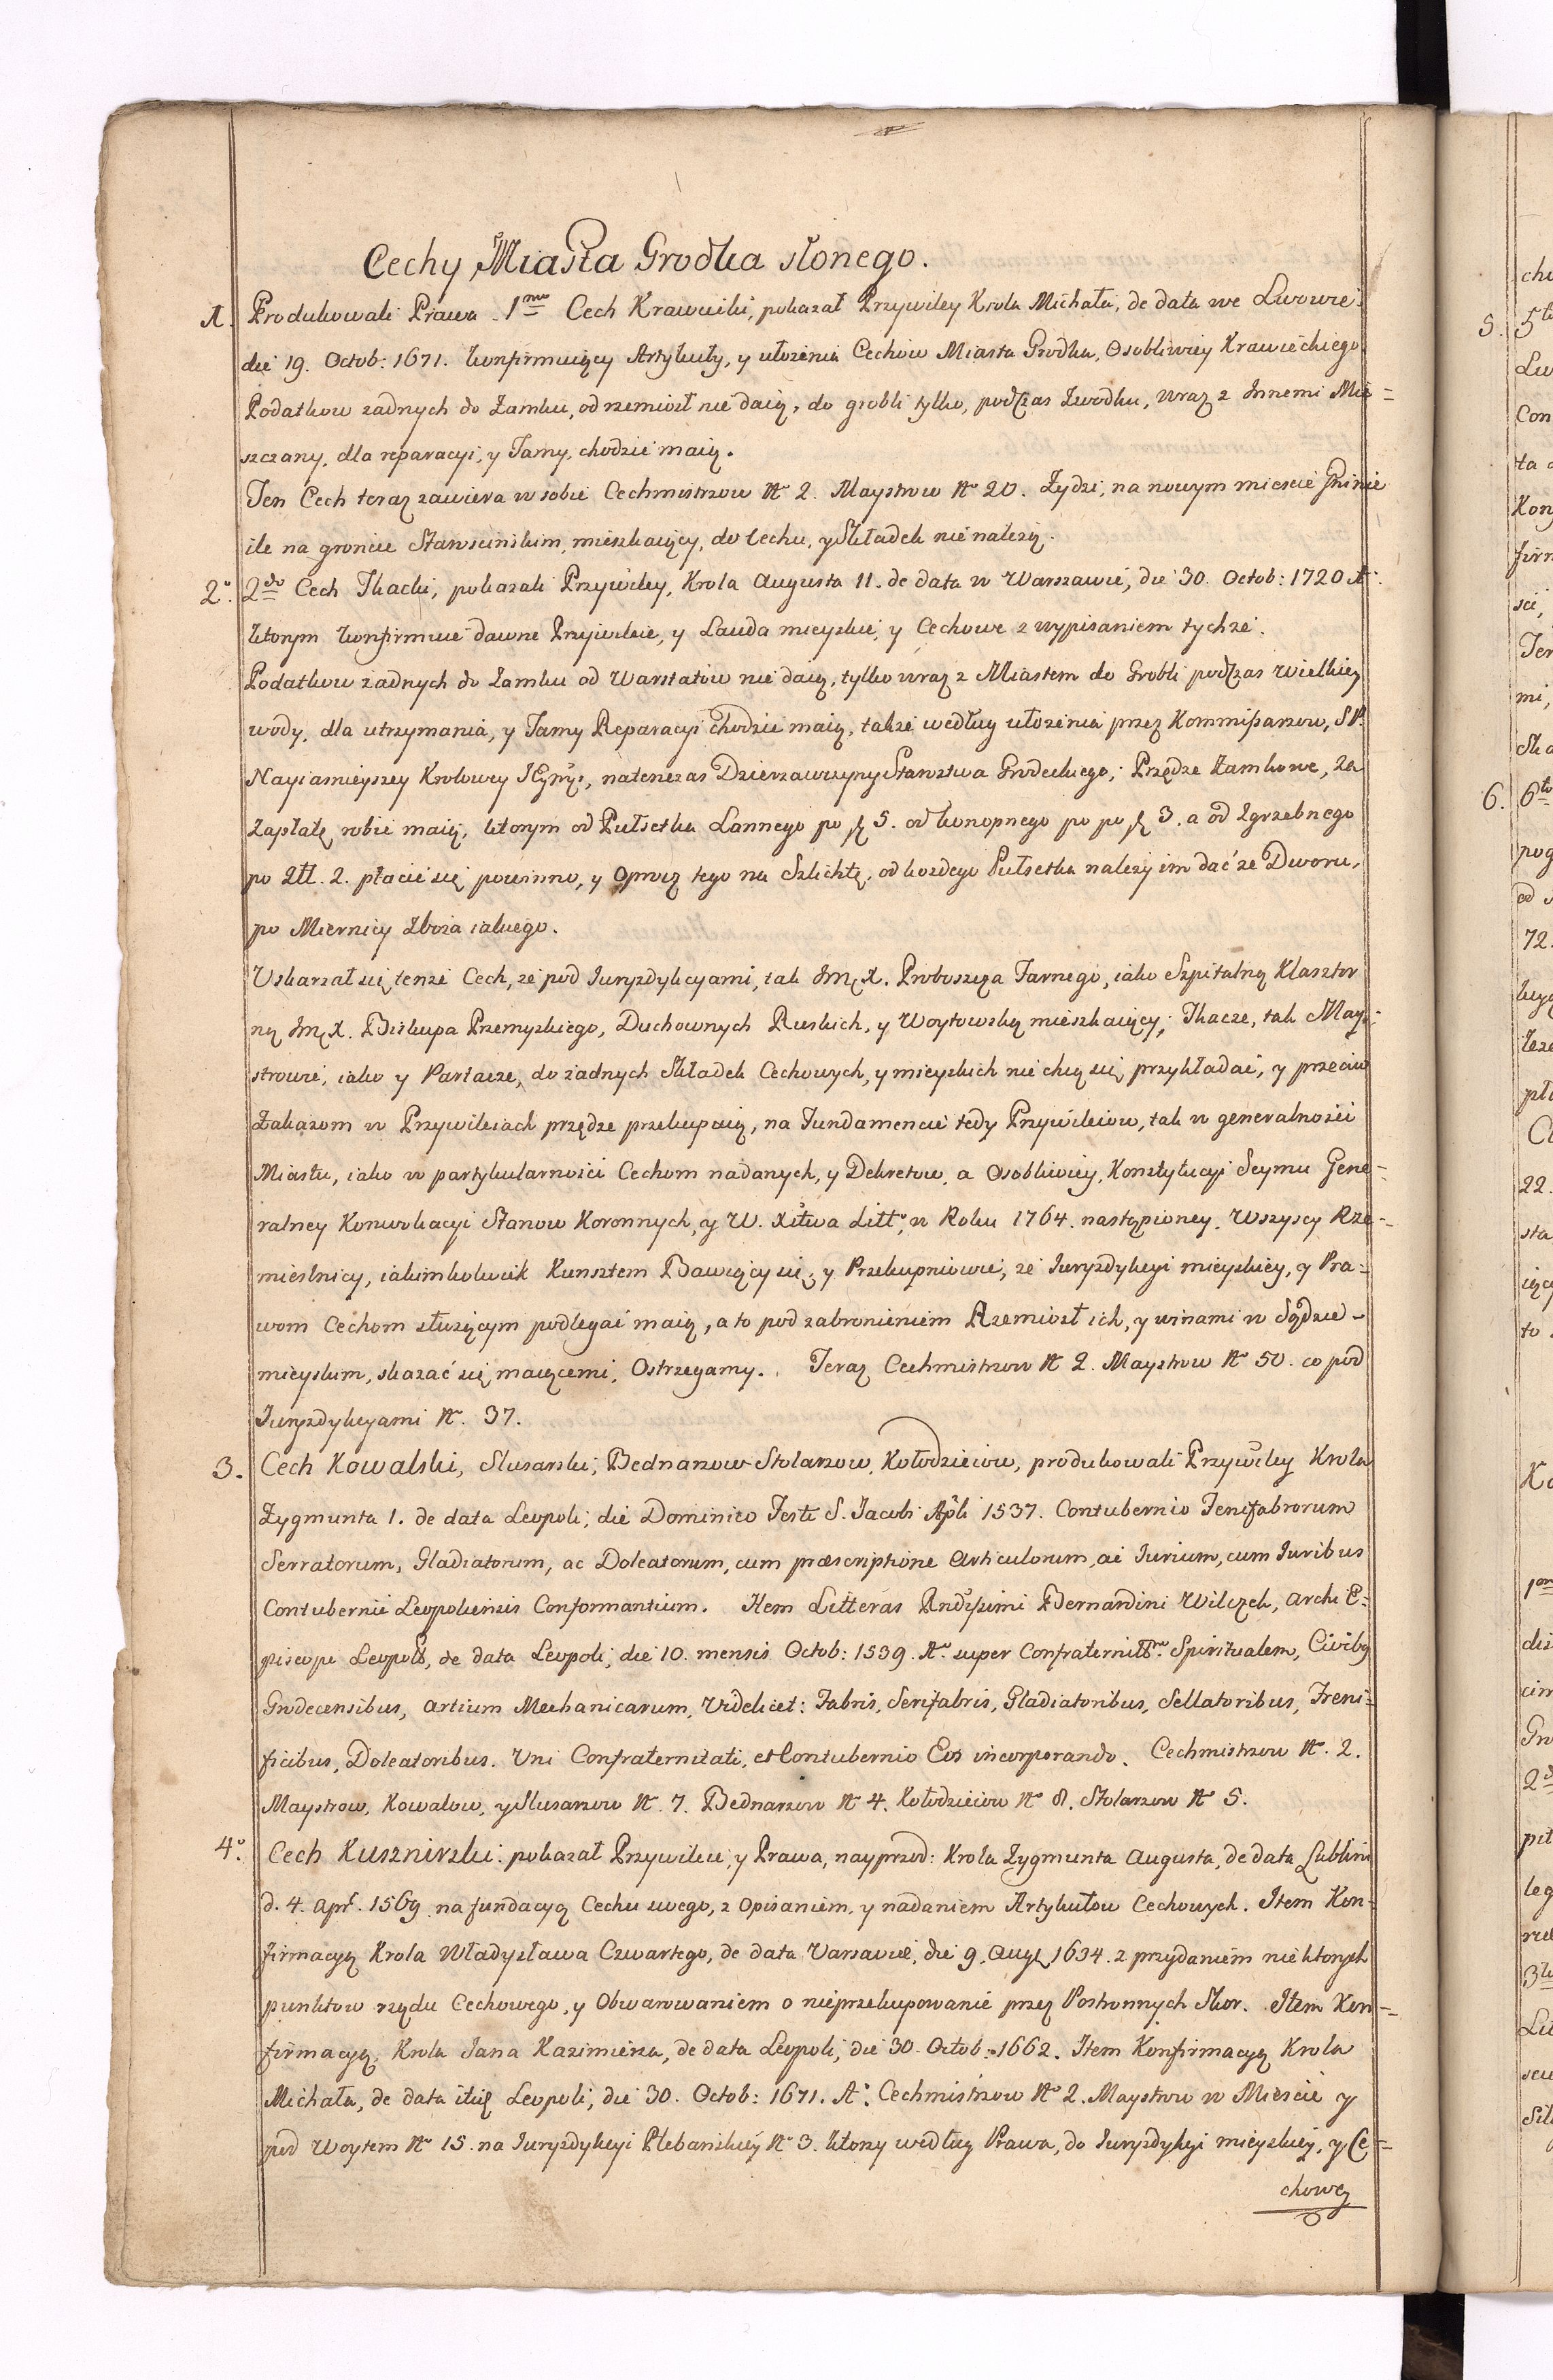 Cechy Miasta Grodka słonego.
1. Produkowali Prawa 1mo Cech Krawiecki, pokazał Przywiley Krola Michała, de data we Lwowie
die 19. Octob: 1671. konfirmuiący Artykuły, y ułożenia Cechow Miasta Grodka, Osobliwiey Krawieckiego
Podatkow zadnych do Zamku, od rzemiosł nie daią, do grobli tylko, podczas Zwodku, wraz z Innemi Mie=
szczany, dla reparacyi, y Tamy, chodzić maią.
Ten Cech teraz zawiera w sobie Cechmistrzow No 2. Maystrow No 20. Zydzi, na nowym mieście
ile na groncie Starościnskim, mieszkaiący, do Cechu, y Składek nie należą.
2o. 2do Cech Tkacki, pokazali Przywiley, Krola Augusta 11. de data w Warszawie, die 30. Octob: 1720 Ao.
ktorym konfirmuie dawne Przywileie, y Lauda mieyskie, y Cechowe z wypisaniem tychże.
Podatkow zadnych do Zamku od Warstatow nie daią, tylko wraz z Miastem do Grobli podczas Wielkiey
wody, dla utrzymania, y Tamy Reparacyi chodzić maią, także według ułożenia przez Kommissarzow, S P.
Nayiasnieyszey Krolowey natenczas Dzierzawczyny Starostwa Grodeckiego, Przędze Zamkowe, za
Zapłatę robić maią, ktorym od Pułsetka Lannego po 5. od konopnego po po 3. a od Zgrzebnego
po Złł. 2. płacić się powinno, y Oprocz tego na Szlichtę, od kozdego Pułsetka należy im dać ze Dworu,
po Miernicy Zboża iakiego.
Uskarzał się tenże Cech, że pod Juryzdykcyami, tak Jmć X. Proboszcza Farnego, iako Szpitalną Klasztor
ną Jmć X. Biskupa Przemyskiego, Duchownych Ruskich, y Woytowską mieszkaiący, Tkacze, tak May=
strowie, iako y Partacze, do żadnych Składek Cechowych, y mieyskich nie chcą się przykładać, y przeciw
Zakazom w Przywileiach przędze przekupuią, na Fundamencie tedy Przywileiow, tak w generalności
Miastu, iako w partykularności Cechom nadanych, y Dekretow, a Osobliwiey, Konstytucyi Seymu Gene=
ralney Konwokacyi Stanow Koronnych, y W. Xtwa Litto w Roku 1764. nastąpioney. Wszyscy Rze=
mieslnicy, iakimkolwiek Kunsztem Bawiący się, y Przekupniowie, ze Juryzdykcyi mieyskiey, y Pra=
wom Cechom służącym podlegać maią, a to pod zabronieniem Rzemiosł ich, y winami w Sądzie
mieyskim, skazać się maiącemi, Ostrzegamy. Teraz Cechmistrzow No 2. Maystrow No 50. co pod
Juryzdykcyami No. 37.
3. Cech Kowalski, Slusarski, Bednarzow Stolarzow, Kołodzieiow, produkowali Przywiley Krola
Zygmunta 1. de data Leopoli, die Dominico Festi S. Jacobi Apli 1537. Contubernio Fenifabrorum
Serratorum, Gladiatorum, ac Doleatorum, cum præscriptione Articulorum, ac Jurium, cum Juribus
Contubernii Leopoliensis Conformantium. Item Litteras Rndissimi Bernardini Wilczek, Archi E=
piscopi Leopoli, de data Leopoli, die 10. mensis Octob: 1539. Ao super Confraternittm Spiritualem, Civibg
Grodecensibus, Artium Mechanicarum, Videlicet: Fabris, Serifabris, Gladiatoribus, Sellatoribus, Freni=
ficibus, Doleatoribus. Uni Confraternitati, et Contubernio Eos incorporando. Cechmistrzow No. 2.
Maystrow, Kowalow, y Slusarzow No. 7. Bednarzow No 4. Kołodzieiow No 8. Stolarzow No 5.
4o. Cech Kusznirski: pokazał Przywileie, y Prawa, nayprzod: Krola Zygmunta Augusta, de data Lublini
d. 4. Apr. 1569 na fundacyą Cechu swego, z Opisaniem, y nadaniem Artykułow Cechowych. Item Kon=
firmacyą Krola Władysława Czwartego, de data Varsaviæ, die 9. Aug 1634. z przydaniem niektorych
punktow rządu Cechowego, y Obwarowaniem o nieprzekupowanie przez Postronnych Skor. Item Kon=
firmacyą, Krola Jana Kazimierza, de data Leopoli, die 30. Octob: 1662. Item Konfirmacyą Krola
Michała, de data itidę Leopoli, die 30. Octob: 1671. Ao. Cechmistrzow No 2. Maystrow w Mieście y
pod Woytem No 15. na Juryzdykcyi Plebanskiey No 3. ktorzy według Prawa, do Juryzdykcyi mieyskiey, y Ce=
chowey
5.
6.